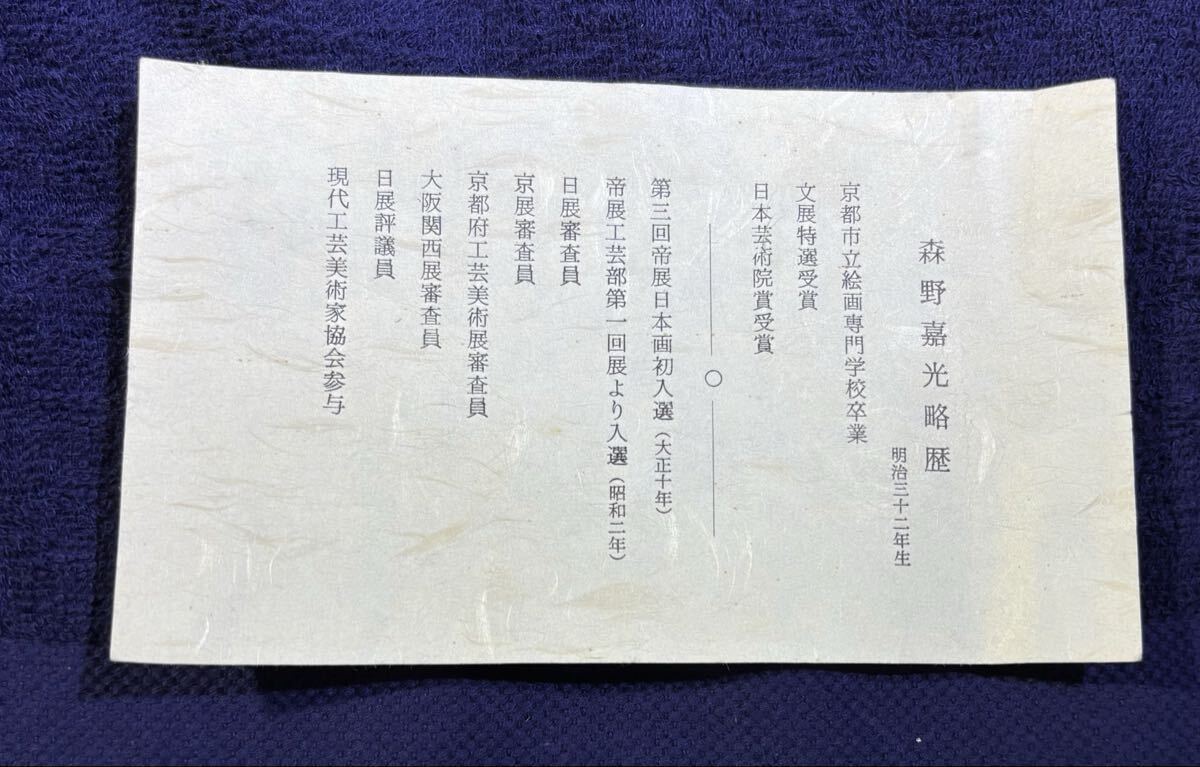 森野嘉光略歴
明治三十二年生
京都市立絵画専門学校卒業
文展特選受賞
日本芸術院賞受賞
第三回帝展日本画初入選(大正十年)
帝展工芸部第一回展より入選(昭和二年)
日展審査員
京展審査員
京都府工芸美術展審査員
大阪関西展審査員
日展評議員
現代工芸美術家協会参与